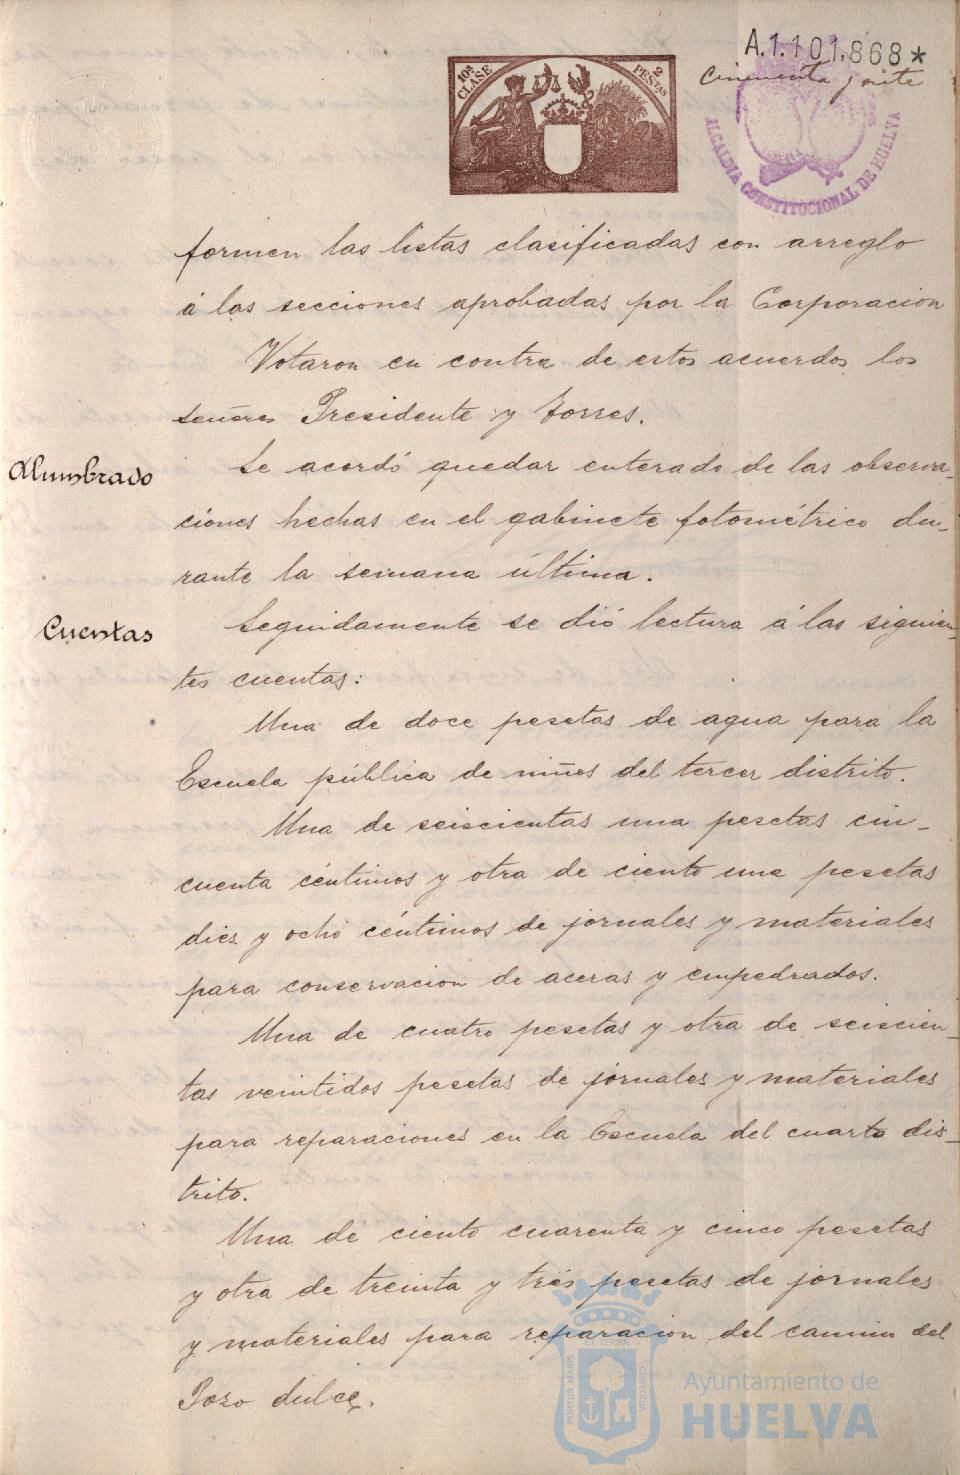 A.1.101.868*
Cincuenta y siete
10ª CLASE
2 PESTAS
ALCALDIA CONSTITUCIONAL DE HUELVA
formen las listas clasificadas con arreglo
á las secciones aprobadas por la Corporacion
Votaron en contra de estos acuerdos los
señores Presidente y Torres.
Alumbrado
Se acordó quedar enterado de las observa-
ciones hechas en el gabinete fotométrico du-
rante la semana última.
Cuentas
Seguidamente se dió lectura á las siguien-
tes cuentas:
Una de doce pesetas de agua para la
Escuela pública de niños del tercer distrito.
Una de seiscientas una pesetas cin-
cuenta céntimos y otra de ciento una pesetas
diez y ocho céntimos de jornales y materiales
para conservacion de aceras y empedrados.
Una de cuatro pesetas y otra de seiscien-
tas veintidos pesetas de jornales y materiales
para reparaciones en la Escuela del cuarto dis-
trito.
Una de ciento cuarenta y cinco pesetas
y otra de treinta y tres pesetas de jornales
y materiales para reparacion del camino del
Pozo dulce.
PORTUS MARIS
ET TERRÆ
CUSTODIA
Ayuntamiento de
HUELVA